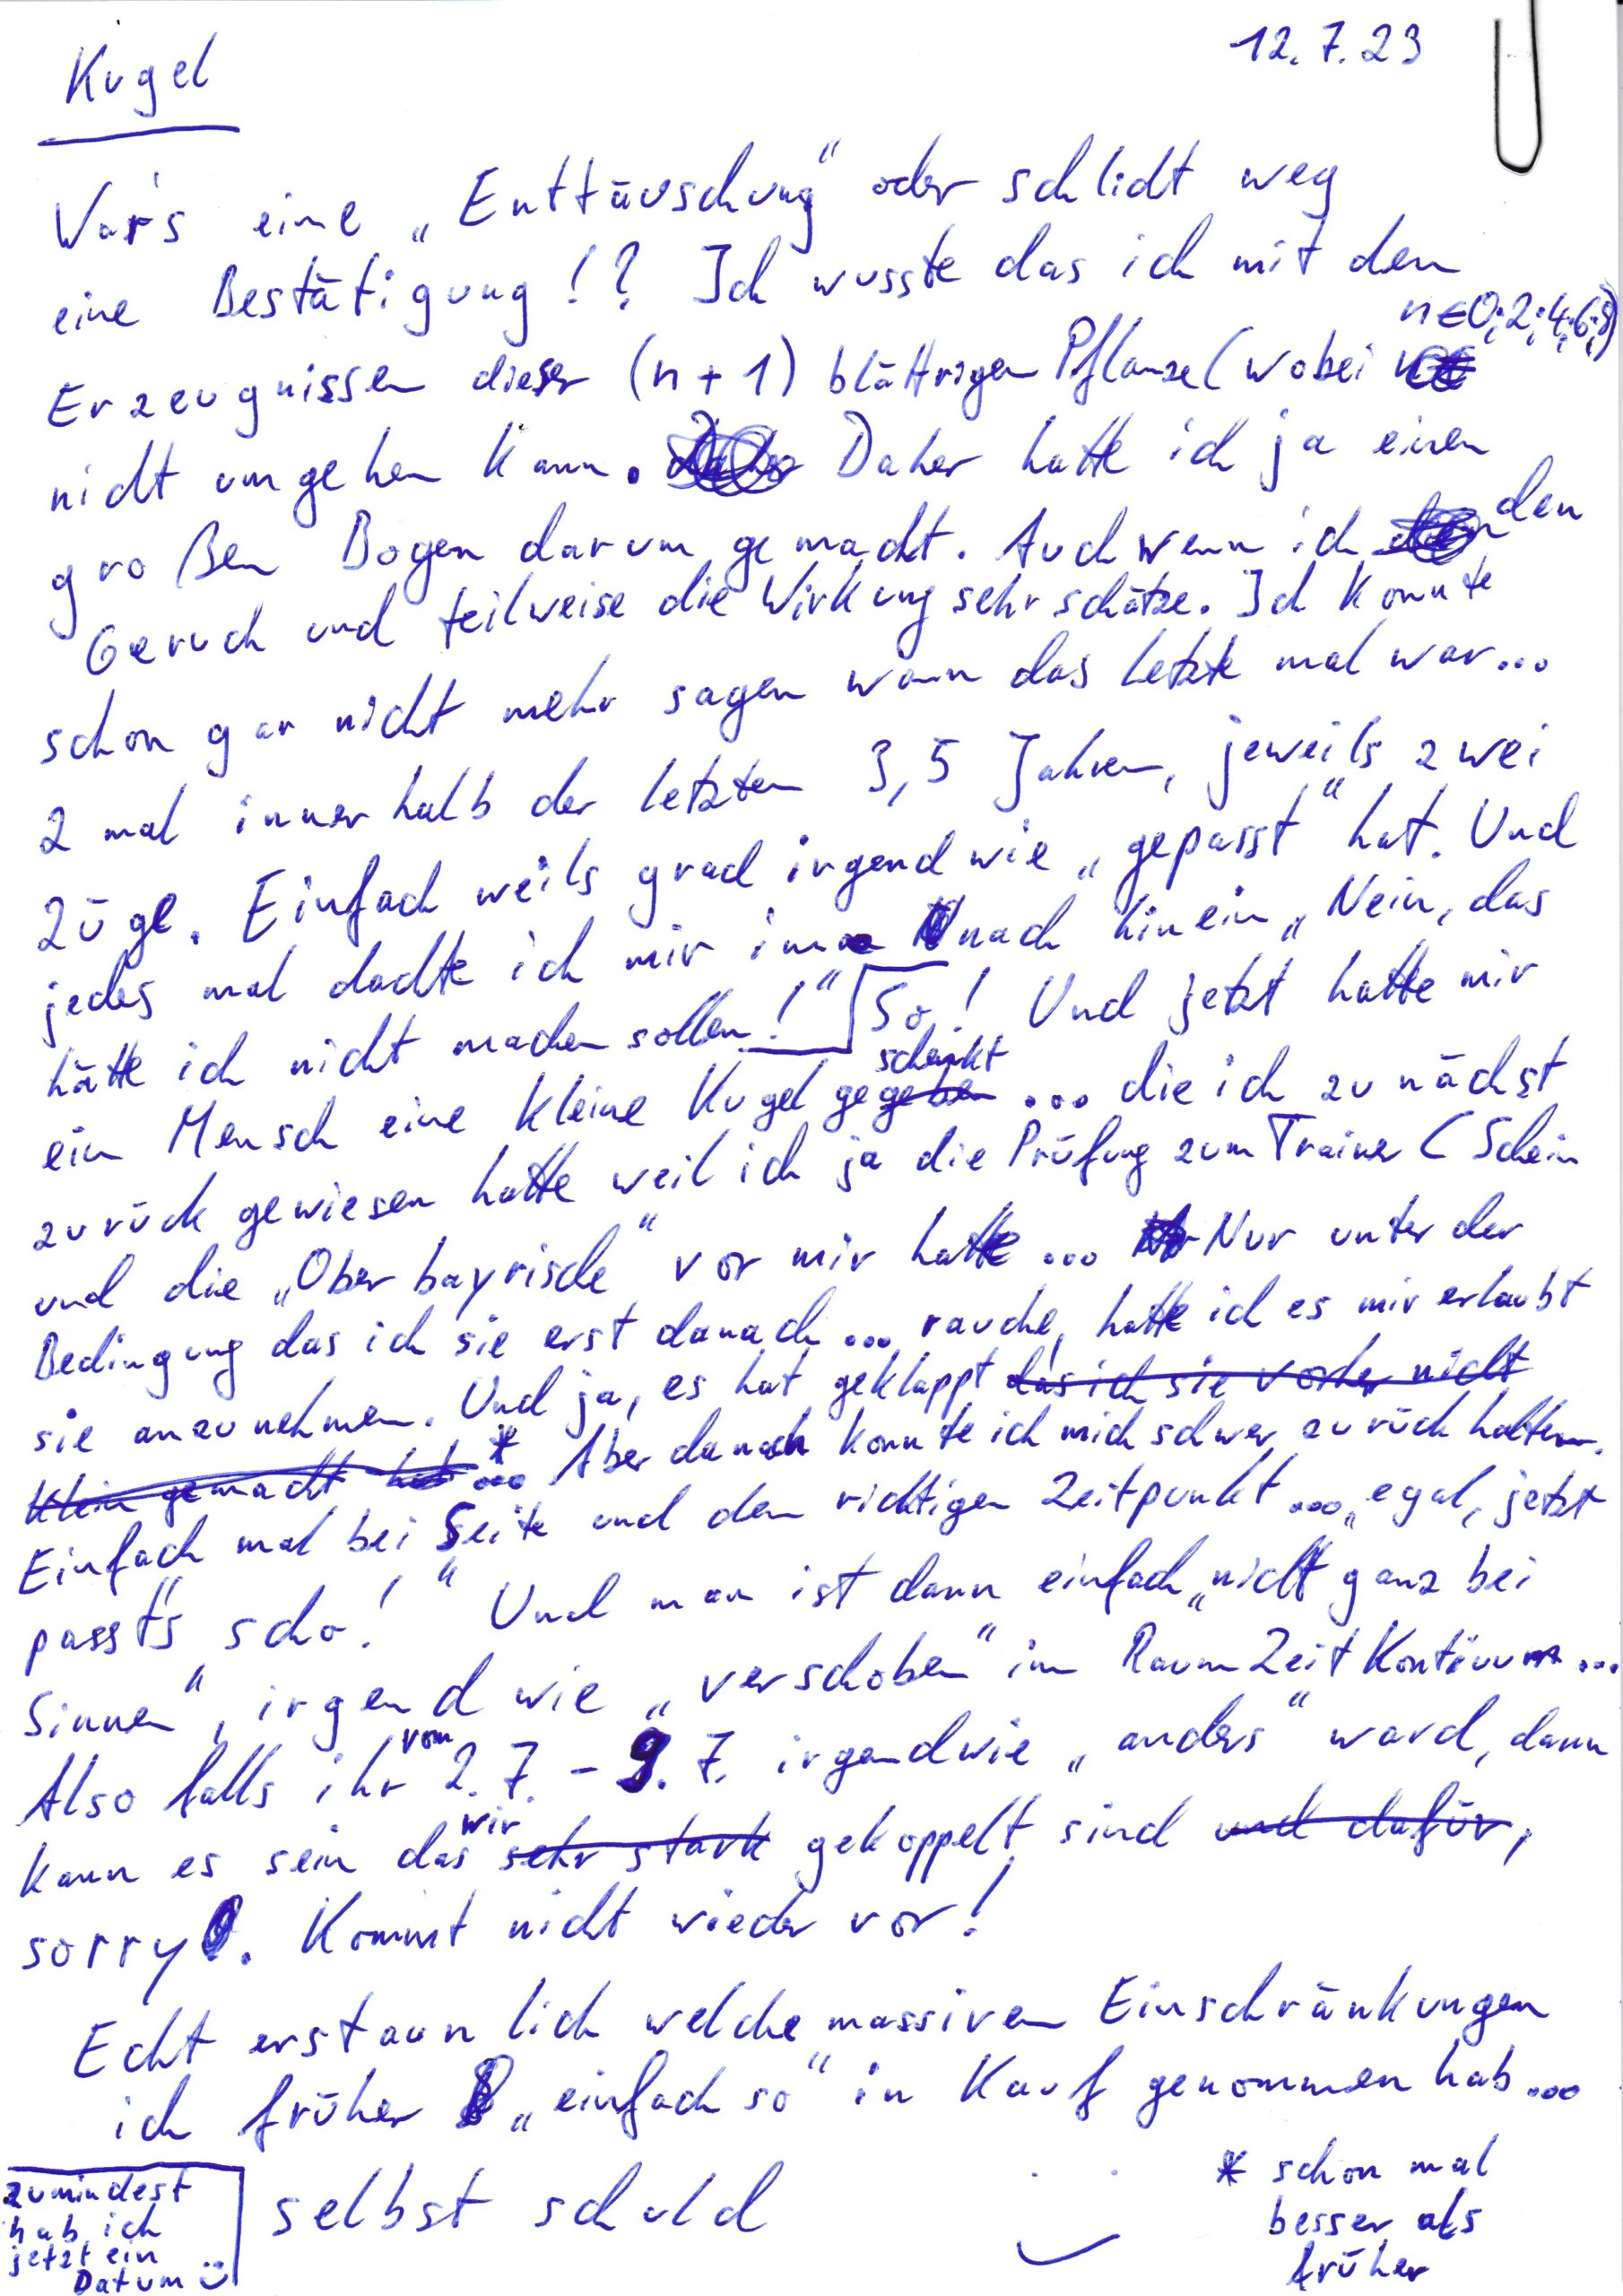 12.7.23
Kugel
War's eine „Enttäuschung" oder schlicht weg
eine Bestätigung!? Ich wusste das ich mit den
n∈0;2;4;6;8)
Erzeugnissen dieser (n+1) blättrigen Pflanze (wobei
nicht umgehen kann. Daher hatte ich ja einen
großen Bogen darum gemacht. Auch wenn ich den
Geruch und teilweise die Wirkung sehr schätze. Ich konnte
schon gar nicht mehr sagen wann das letzte mal war...
2 mal innerhalb der letzten 3,5 Jahren, jeweils zwei
Züge. Einfach weils grad irgendwie „gepasst" hat. Und
jedes mal dachte ich mir im nach hinein „Nein, das
hätte ich nicht machen sollen!" So! Und jetzt hatte mir
schenkt
ein Mensch eine kleine Kugel gegeben ... die ich zunächst
zurück gewiesen hatte weil ich ja die Prüfung zum Trainer C Schein
und die „Oberbayrische" vor mir hatte ... Nur unter der
Bedingung das ich sie erst danach ... rauche, hatte ich es mir erlaubt
sie anzunehmen. Und ja, es hat geklappt das ich sie vorher nicht
klein gemacht hab * ... Aber danach konnte ich mich schwer zurück halten.
Einfach mal bei Seite und den richtigen Zeitpunkt ... „egal, jetzt
passt's scho!" Und man ist dann einfach „nicht ganz bei
Sinnen", irgendwie „verschoben" im Raum Zeit Kontinuum...
Also falls ihr vom 2.7. - 9.7. irgendwie „anders" ward, dann
kann es sein das wir sehr stark gekoppelt sind und dafür,
sorry. Kommt nicht wieder vor!
Echt erstaunlich welche massiven Einschränkungen
ich früher „einfach so" in Kauf genommen hab...
selbst schuld
zumindest
hab ich
jetzt ein
Datum
* schon mal
besser als
früher